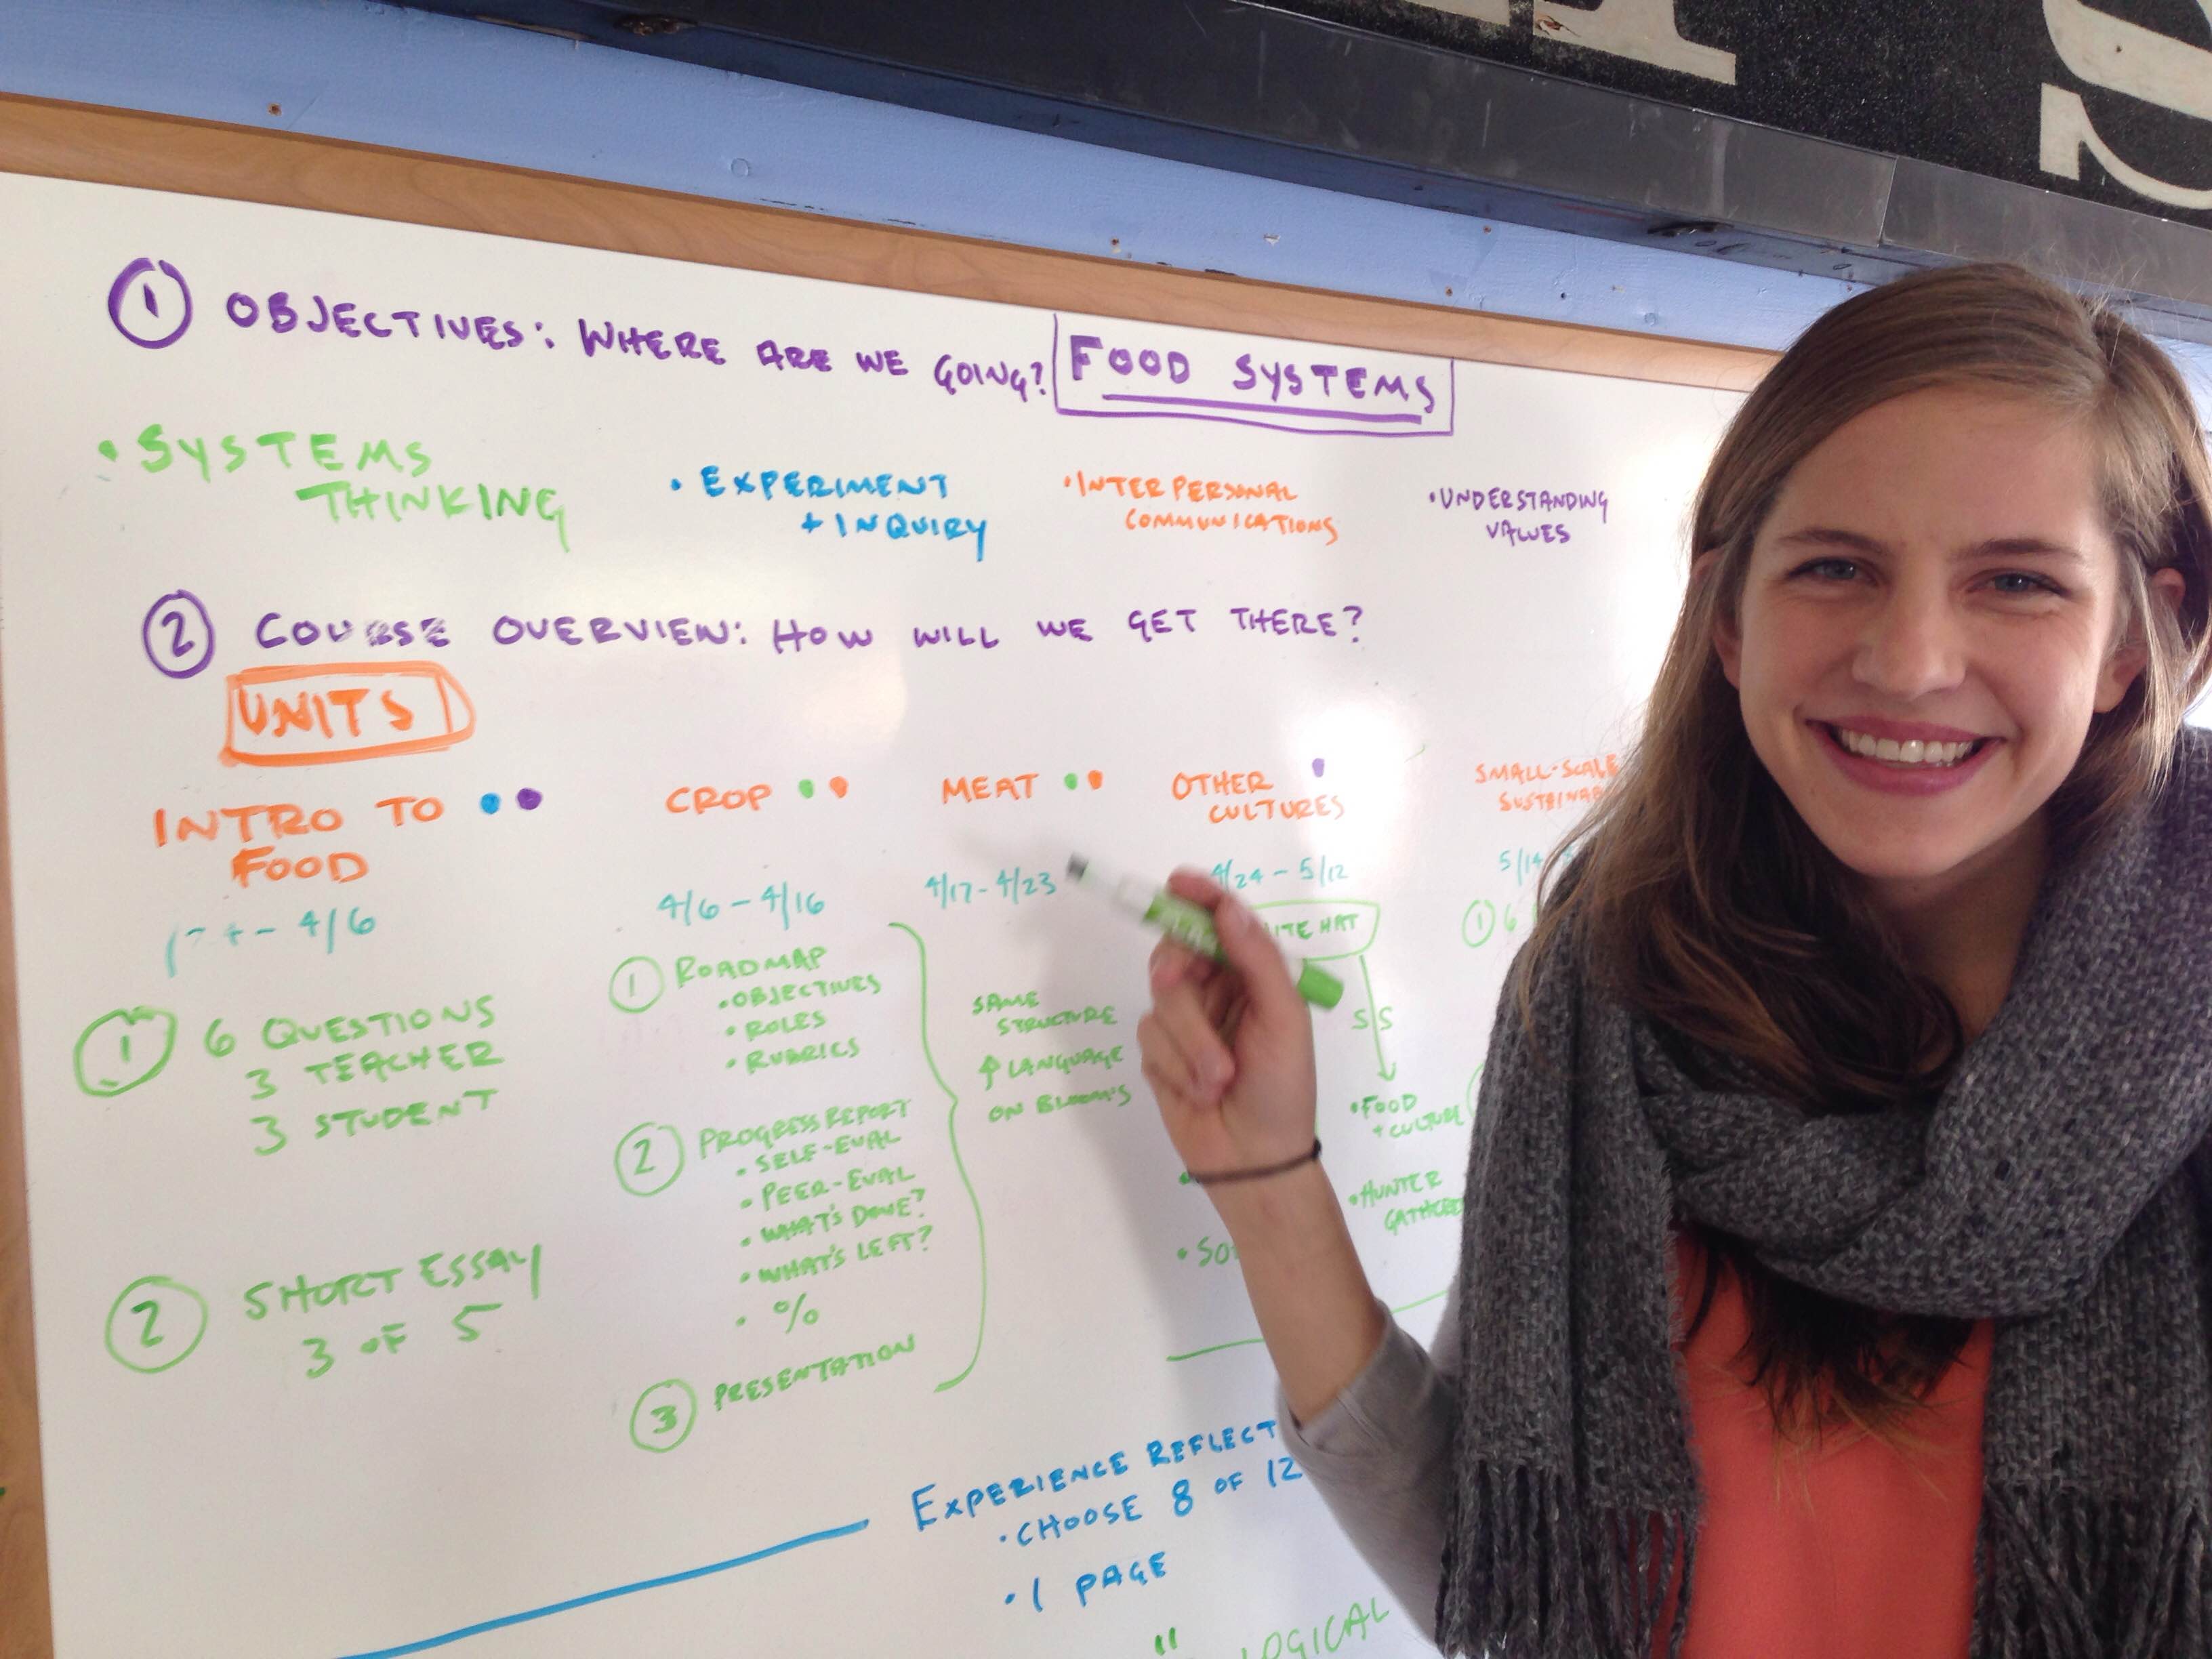 ① OBJECTIVES: WHERE ARE WE GOING? FOOD SYSTEMS
• SYSTEMS
THINKING
• EXPERIMENT
+ INQUIRY
• INTERPERSONAL
COMMUNICATIONS
• UNDERSTANDING
VALUES
② COURSE OVERVIEW: HOW WILL WE GET THERE?
UNITS
INTRO TO
FOOD
- 4/6
① 6 QUESTIONS
3 TEACHER
3 STUDENT
② SHORT ESSAY
3 OF 5
CROP
4/6 - 4/16
① ROADMAP
• OBJECTIVES
• ROLES
• RUBRICS
② PROGRESS REPORT
• SELF-EVAL
• PEER-EVAL
• WHAT'S DONE?
• WHAT'S LEFT?
• %
③ PRESENTATION
MEAT
4/17 - 4/23
SAME
STRUCTURE
↑ LANGUAGE
ON BLOOM'S
OTHER
CULTURES
4/24 - 5/12
HAT
S S
• FOOD
+ CULTURE
• HUNTER
SMALL-SCALE
5/14
① 6
EXPERIENCE REFLECT
• CHOOSE 8 OF 12
• 1 PAGE
" LOGICAL